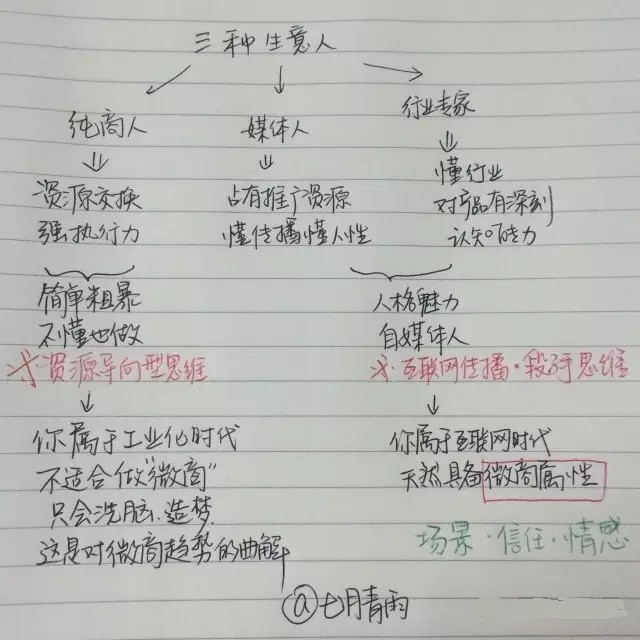 三种生意人
纯商人
媒体人
行业专家
资源交换
强执行力
占有推广资源
懂传播懂人性
懂行业
对产品有深刻
认知
力
简单粗暴
不懂也做
※资源导向型思维
人格魅力
自媒体人
※互联网传播·段子手思维
你属于工业化时代
不适合做"微商"
只会洗脑、造梦
这是对微商趋势的曲解
你属于互联网时代
天然具备微商属性
场景·信任·情感
@七月青雨